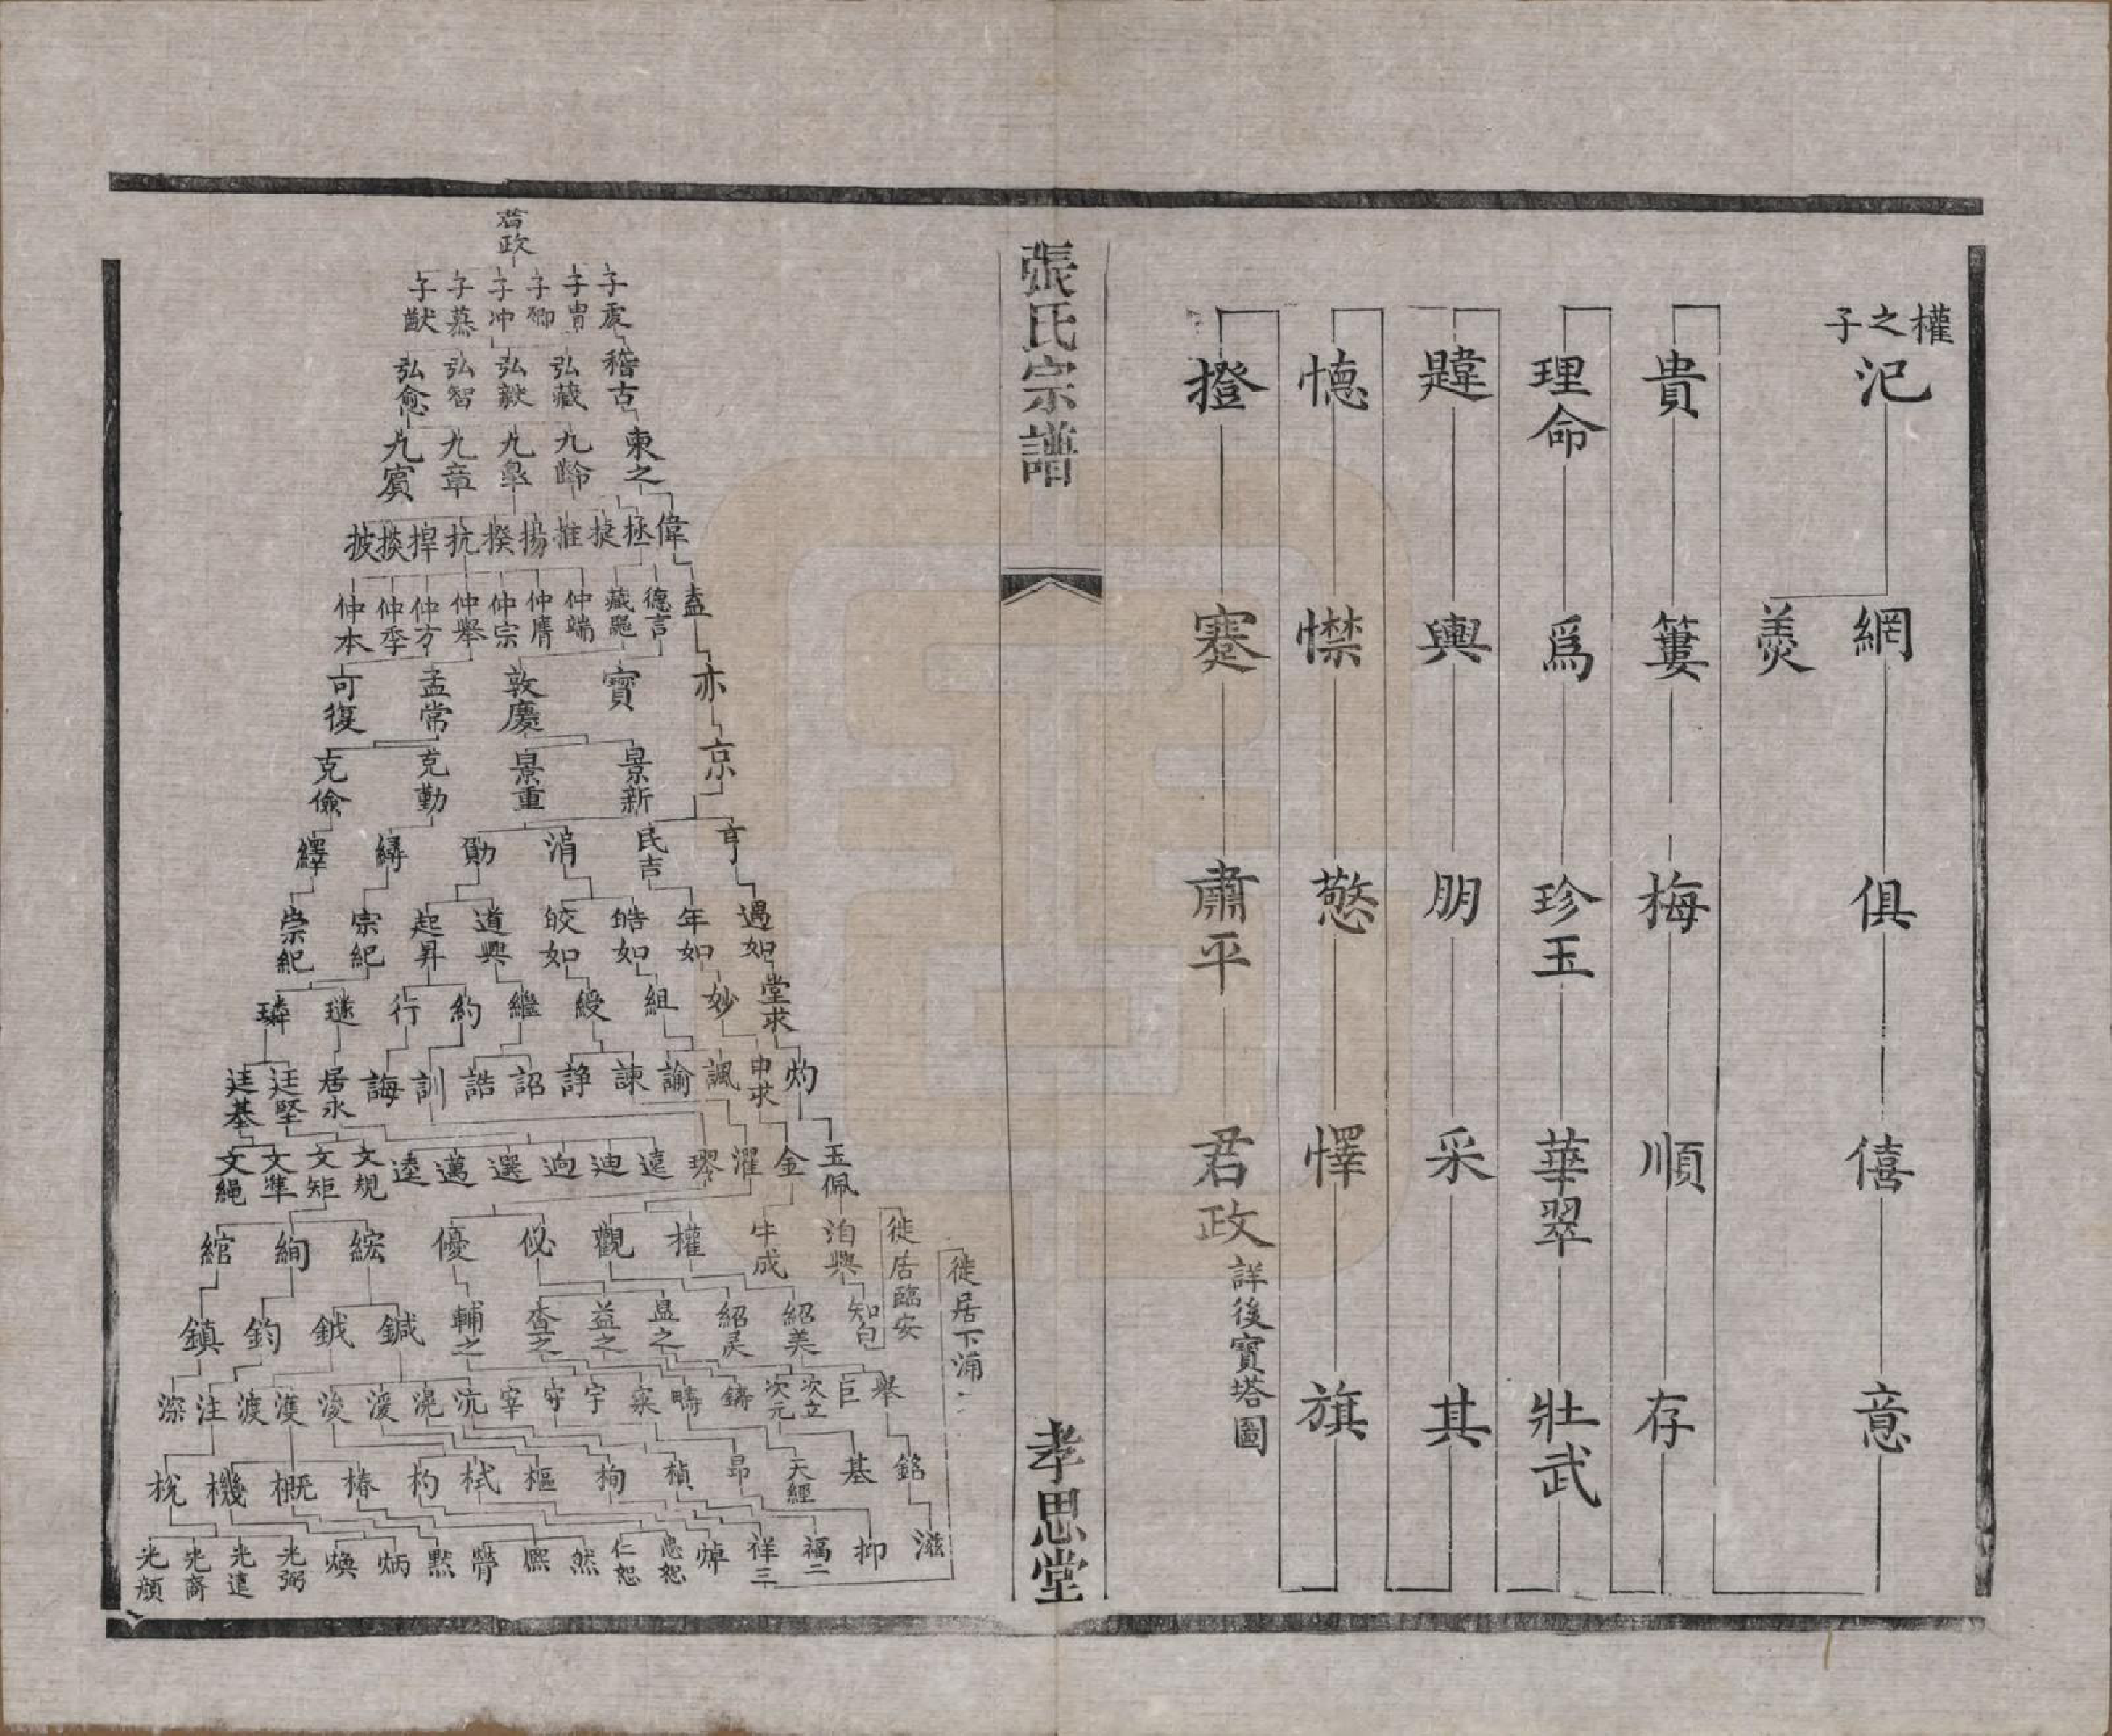 權之子
汜 網 俱 僖 意
羨
貴 簍 梅 順 存
理命 爲 珍玉 華翠 壯武
韙 輿 朋 采 其
憓 㦗 憗 懌 旗
撜 蹇 肅平 君政 詳後寶塔圖
張氏宗譜
孝思堂
君政
子虔 子胄 子卿 子冲 子慕 子猷
稽古 弘藏 弘毅 弘智 弘愈
柬之 九齡 九臯 九章 九賓
偉 拯 捷 推 揚 揆 抗 捍 掞 披
盍 德言 藏 仲端 仲膺 仲宗 仲舉 仲方 仲季 仲本
亦 寶 敦慶 孟常 可復
京 景新 景重 克勤 克儉
亨 民吉 涓 勛 繟 繹
遇如 年如 皓如 皎如 道興 起昇 宗紀 崇紀
堂求 妙 組 綬 繼 約 行 璲 璘
灼 申求 諷 諭 諫 諍 詔 誥 訓 誨 居永 廷堅 廷基
玉佩 金 濯 璆 遠 迪 迥 選 邁 逵 文規 文矩 文準 文繩
徙居臨安
徙居下浦
泊興 牛成 權 觀 佖 優 綋 絢 綰
知白 紹美 紹昃 昷之 益之 杳之 輔之 鍼 鉞 鈞 鎮
舉 巨 次立 次元 鑄 疇 宷 宇 守 宰 沆 滉 湲 浚 濩 渡 注 深
銘 基 天經 昻 楨 栒 樞 栻 杓 椿 概 機 梲
滋 抑 福二 祥三 焯 忠恕 仁恕 然 熙 勞 黙 炳 煥 光弼 光遠 光裔 光頠